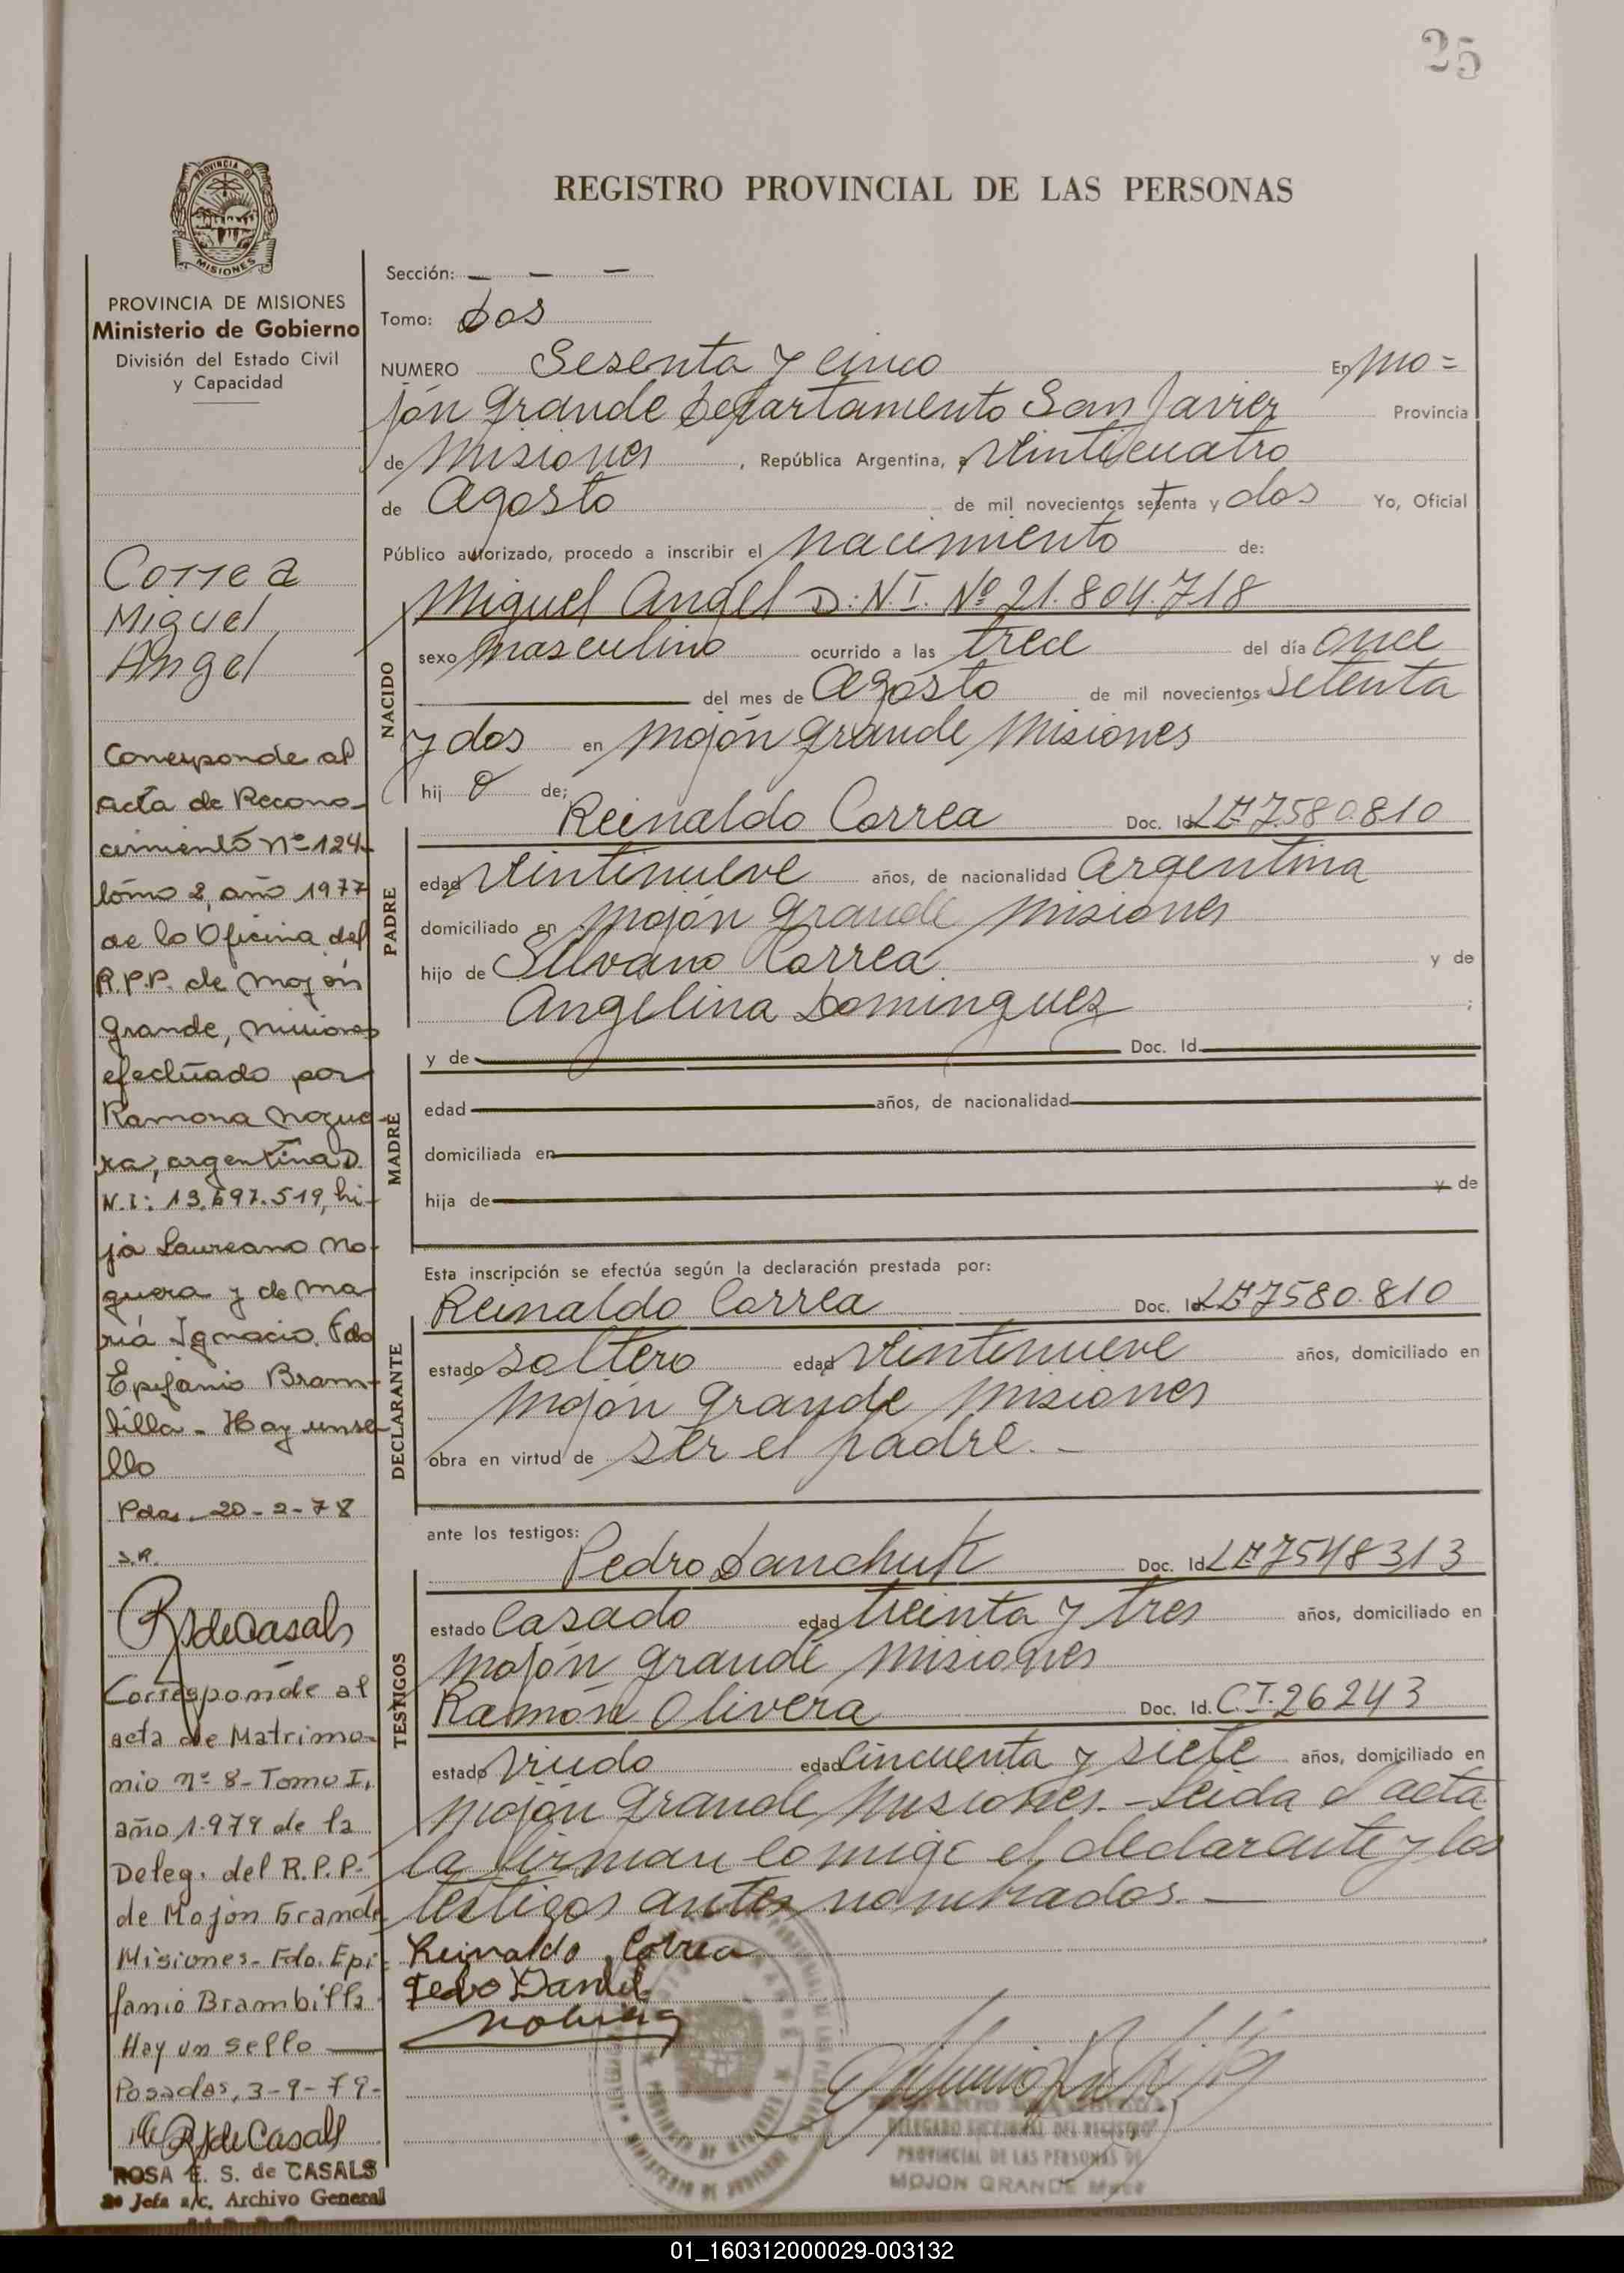 25
PROVINCIA DE
MISIONES
REGISTRO PROVINCIAL DE LAS PERSONAS
PROVINCIA DE MISIONES
Ministerio de Gobierno
División del Estado Civil
y Capacidad
Correa
Miguel
Angel
Corresponde al
acta de Recono-
cimiento Nº 124
tomo 2, año 1977
de la Oficina del
R.P.P. de Mojón
Grande, Misiones
efectuado por
Ramona Nogue-
ra, argentina D.
N.I: 13.697.519, hi-
ja Laureano No-
guera y de Ma-
ria Ignacio. Fdo
Epifanio Bram-
billa - Hay un se-
llo
Pdas. 20-2-78
S.R.
RSdeCasals
Corresponde al
acta de Matrimo-
nio nº 8 - Tomo I,
año 1.979 de la
Deleg. del R.P.P.
de Mojón Grande
Misiones - Fdo. Epi-
fanio Brambilla
Hay un sello
Posadas, 3-9-79-
RSdeCasals
ROSA E. S. de CASALS
2º Jefa a/c. Archivo General
Sección: - - -
Tomo: Dos
NUMERO Sesenta y cinco En Mo=
jón Grande Departamento San Javier Provincia
de Misiones, República Argentina, a Veinticuatro
de Agosto de mil novecientos setenta y dos Yo, Oficial
Público autorizado, procedo a inscribir el nacimiento de:
Miguel Angel D.N.I. Nº 21.804.718
NACIDO
sexo Masculino ocurrido a las trece del día once
del mes de Agosto de mil novecientos Setenta
y dos en Mojón Grande Misiones
hij o de;
Reinaldo Correa Doc. Id. LE 7.580.810
PADRE
edad Veintinueve años, de nacionalidad Argentina
domiciliado en Mojón Grande Misiones
hijo de Silvano Correa y de
Angelina Dominguez ;
MADRE
y de Doc. Id.
edad años, de nacionalidad
domiciliada en
hija de y de
Esta inscripción se efectúa según la declaración prestada por:
Reinaldo Correa Doc. Id. LE 7580.810
DECLARANTE
estado Soltero edad Veintinueve años, domiciliado en
Mojón Grande Misiones
obra en virtud de ser el padre. -
ante los testigos:
Pedro Danchuk Doc. Id. LE 7548313
TESTIGOS
estado Casado edad treinta y tres años, domiciliado en
Mojón Grande Misiones
Ramón Olivera Doc. Id. C.I. 26243
estado Viudo edad Cincuenta y siete años, domiciliado en
Mojón Grande Misiones. - Leida el acta
la firman comigo el declarante y los
testigos antes nombrados. -
Reinaldo Correa
DELEGADO SECCIONAL DEL REGISTRO
PROVINCIAL DE LAS PERSONAS DE
MOJON GRANDE
01_160312000029-003132